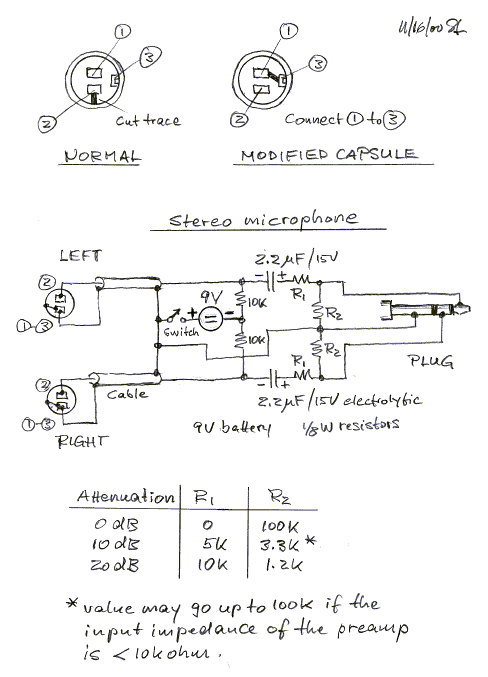 11/16/00 SL
① ③ ① ③
② Cut trace ② Connect ① to ③
NORMAL MODIFIED CAPSULE
Stereo microphone
LEFT 2.2 µF/15V
② - + R₁
9V 10K R₂
①-③ Switch + = -
10K R₂
② R₁ PLUG
Cable - +
①-③ 2.2 µF/15V electrolytic
RIGHT 9V battery 1/8W resistors
Attenuation R₁ R₂
0 dB 0 100K
10 dB 5K 3.3K *
20 dB 10K 1.2K
* value may go up to 100K if the
input impedance of the preamp
is < 10kohm.